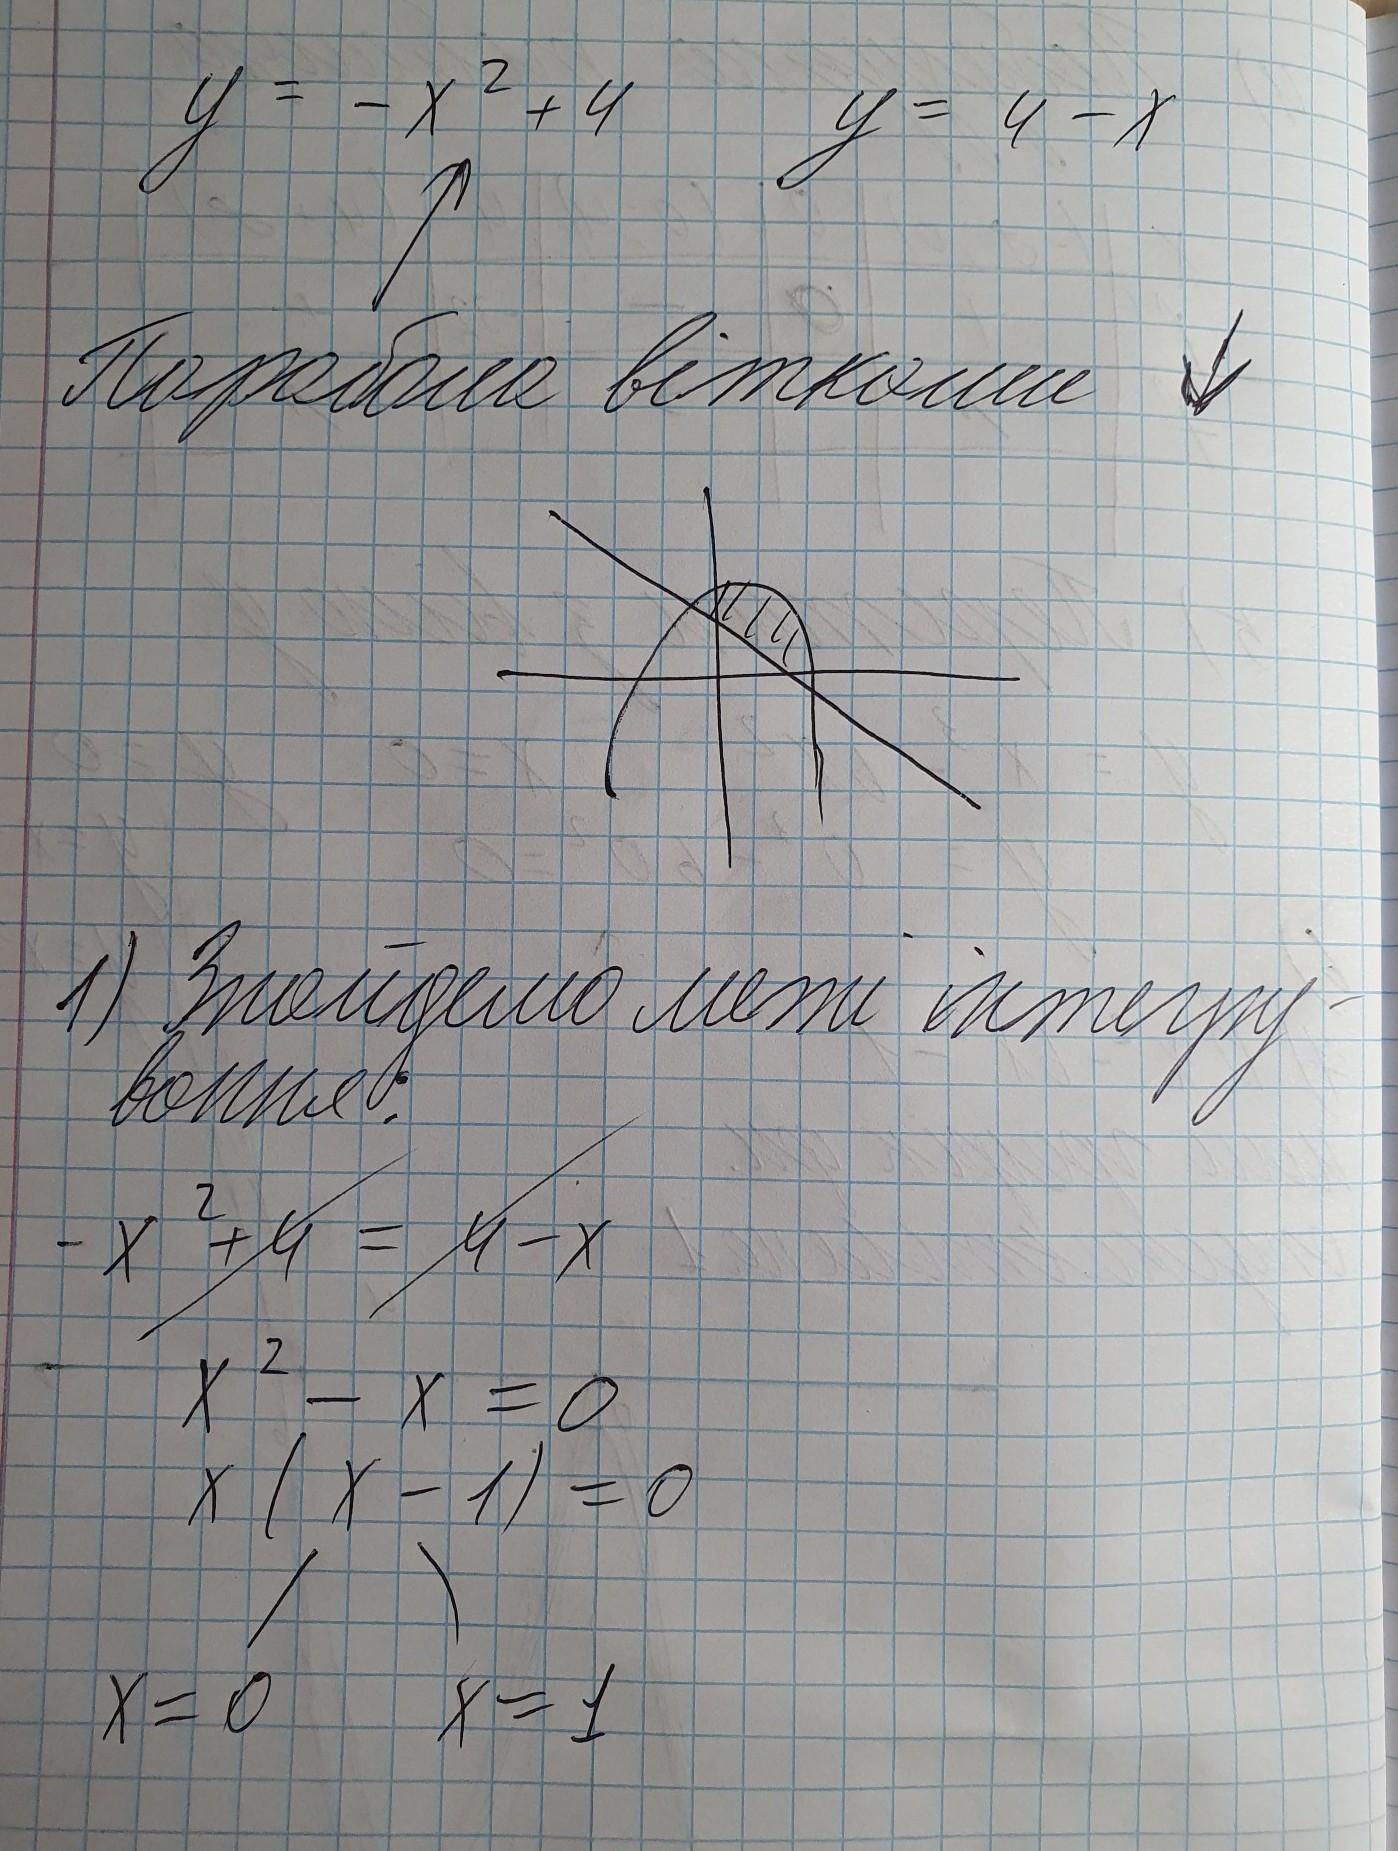 y = -x² + 4 y = 4 - x
Парабола вітками ↓
1) Знайдемо межі інтегру-
вання:
-x² + 4 = 4 - x
x² - x = 0
x(x - 1) = 0
x = 0 x = 1